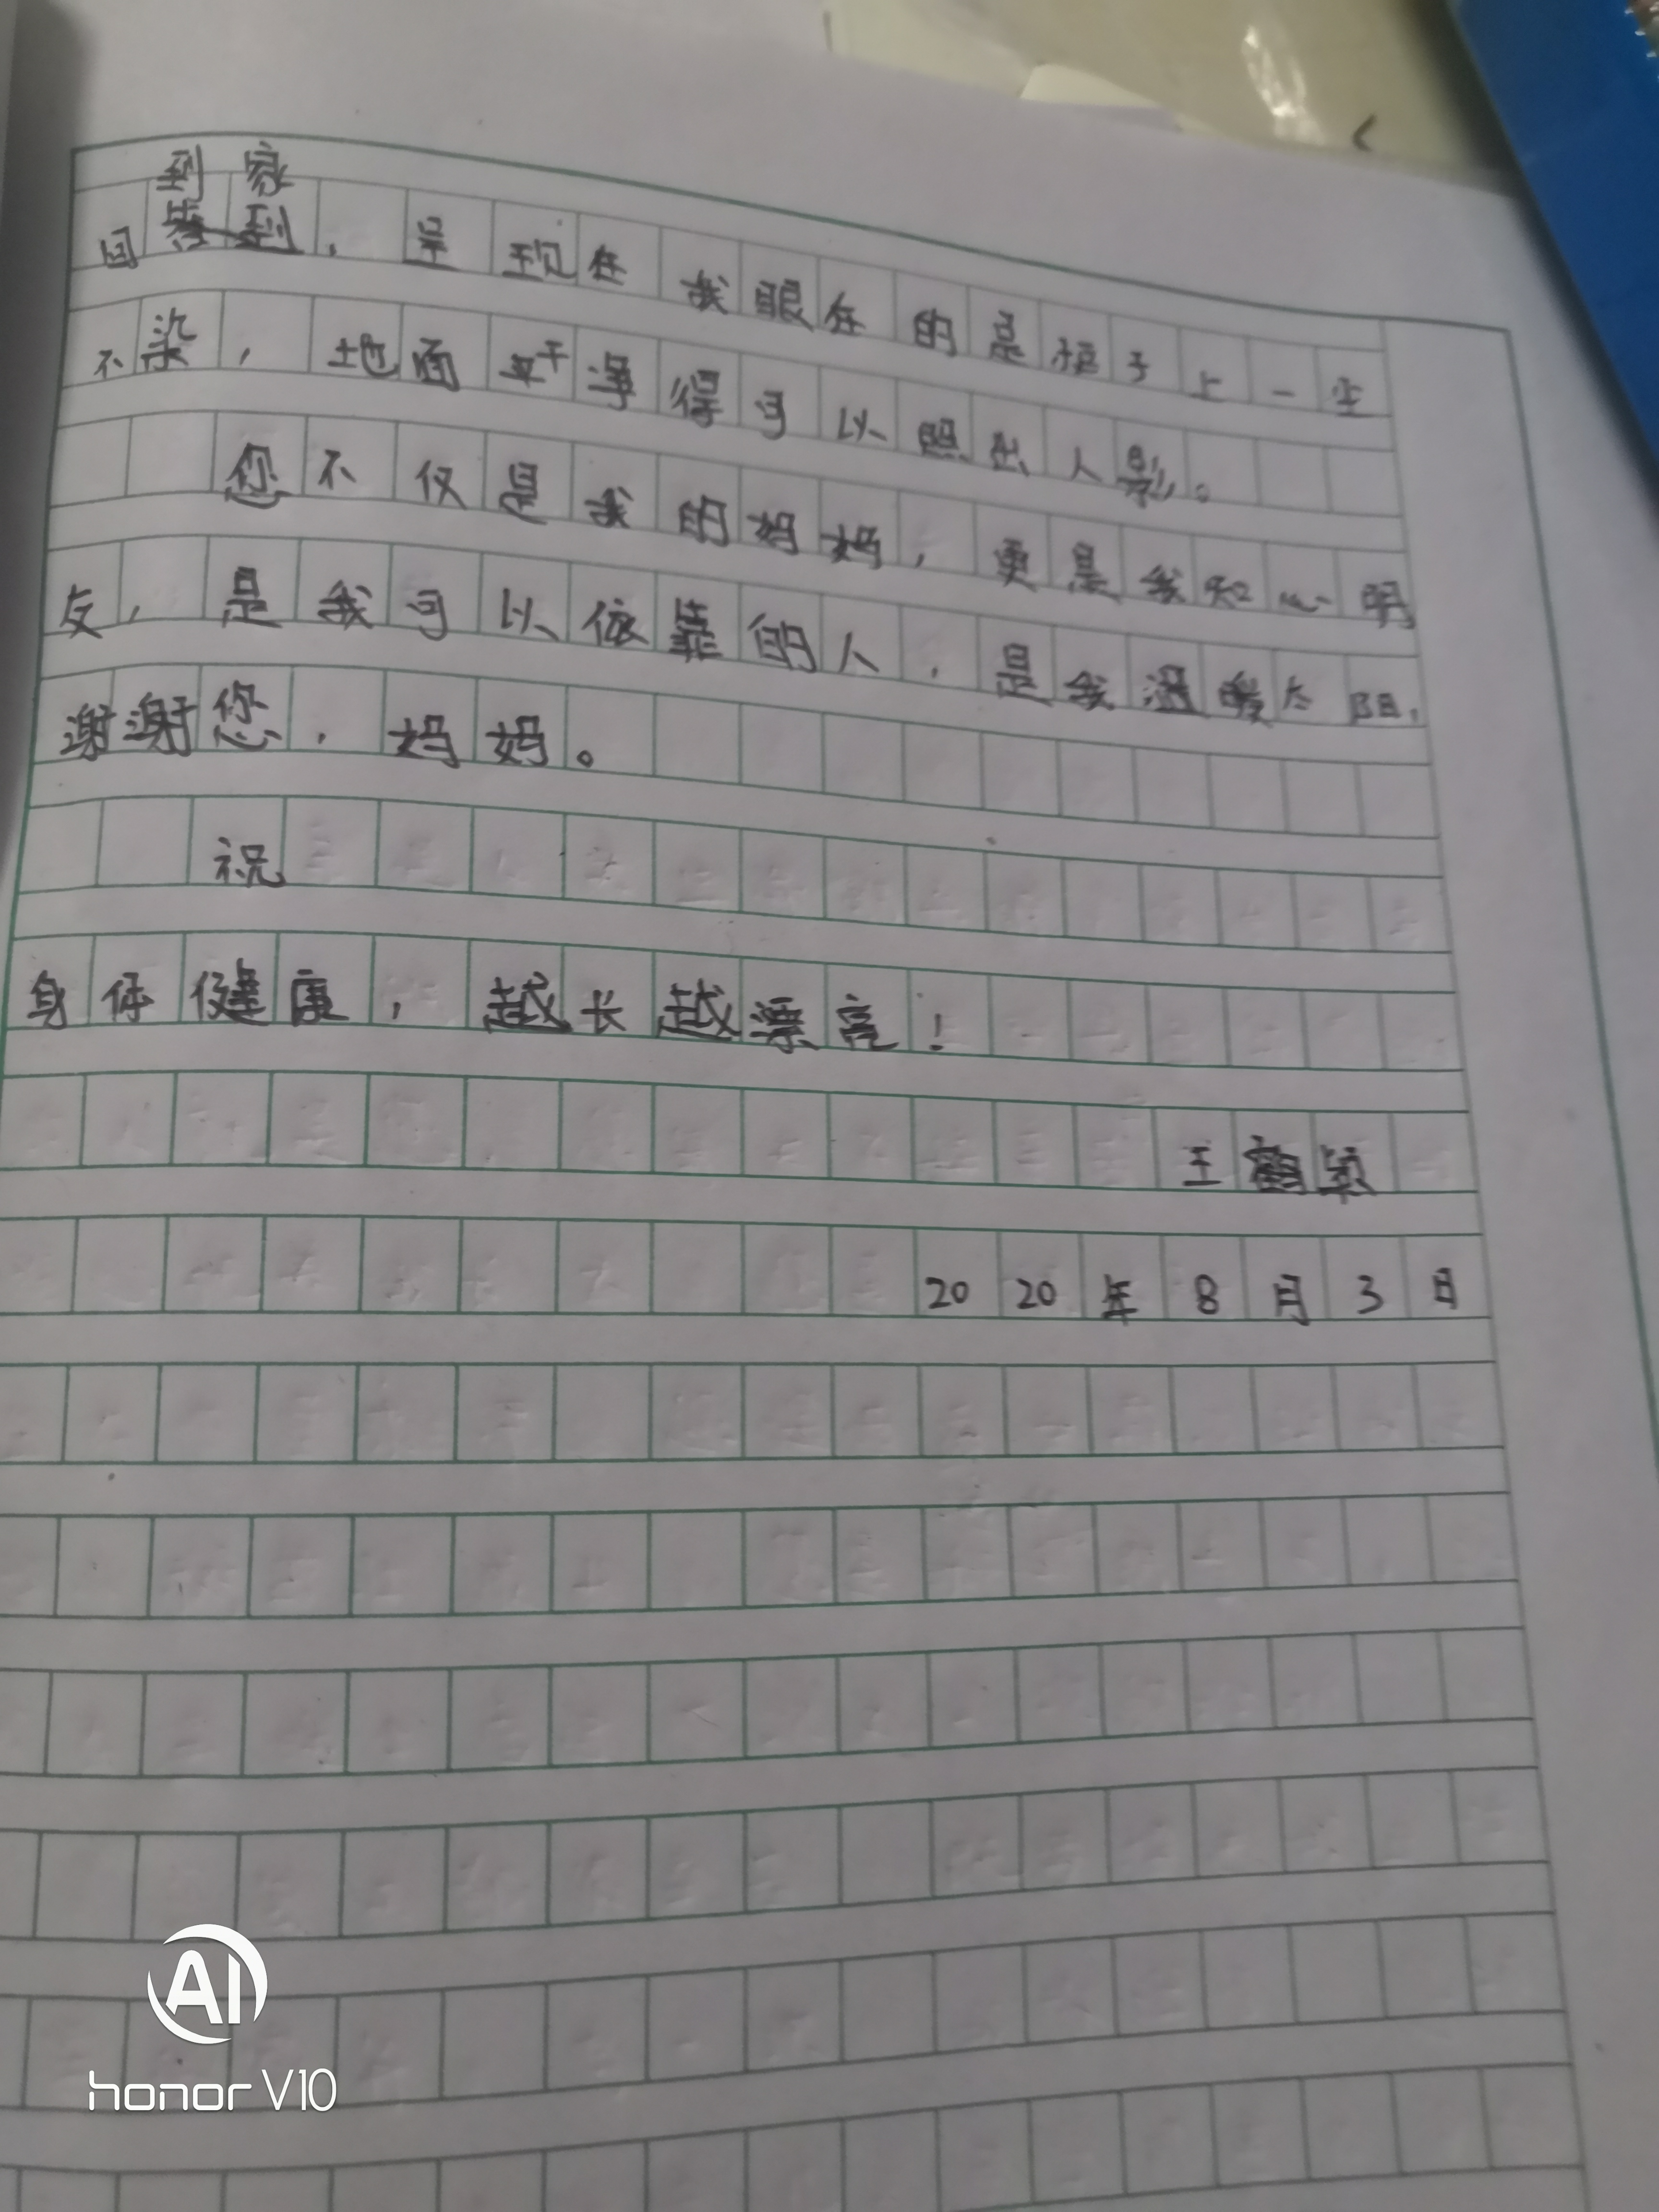 到家
回 , 呈现在我眼在的是柜子上一尘
不染, 地面干净得可以照出人影。
您不仅是我的妈妈, 更是我知心朋
友, 是我可以依靠的人, 是我温暖太阳,
谢谢您, 妈妈。
祝
身体健康, 越长越漂亮!
王鹤颖
2020年8月3日
AI
honor V10